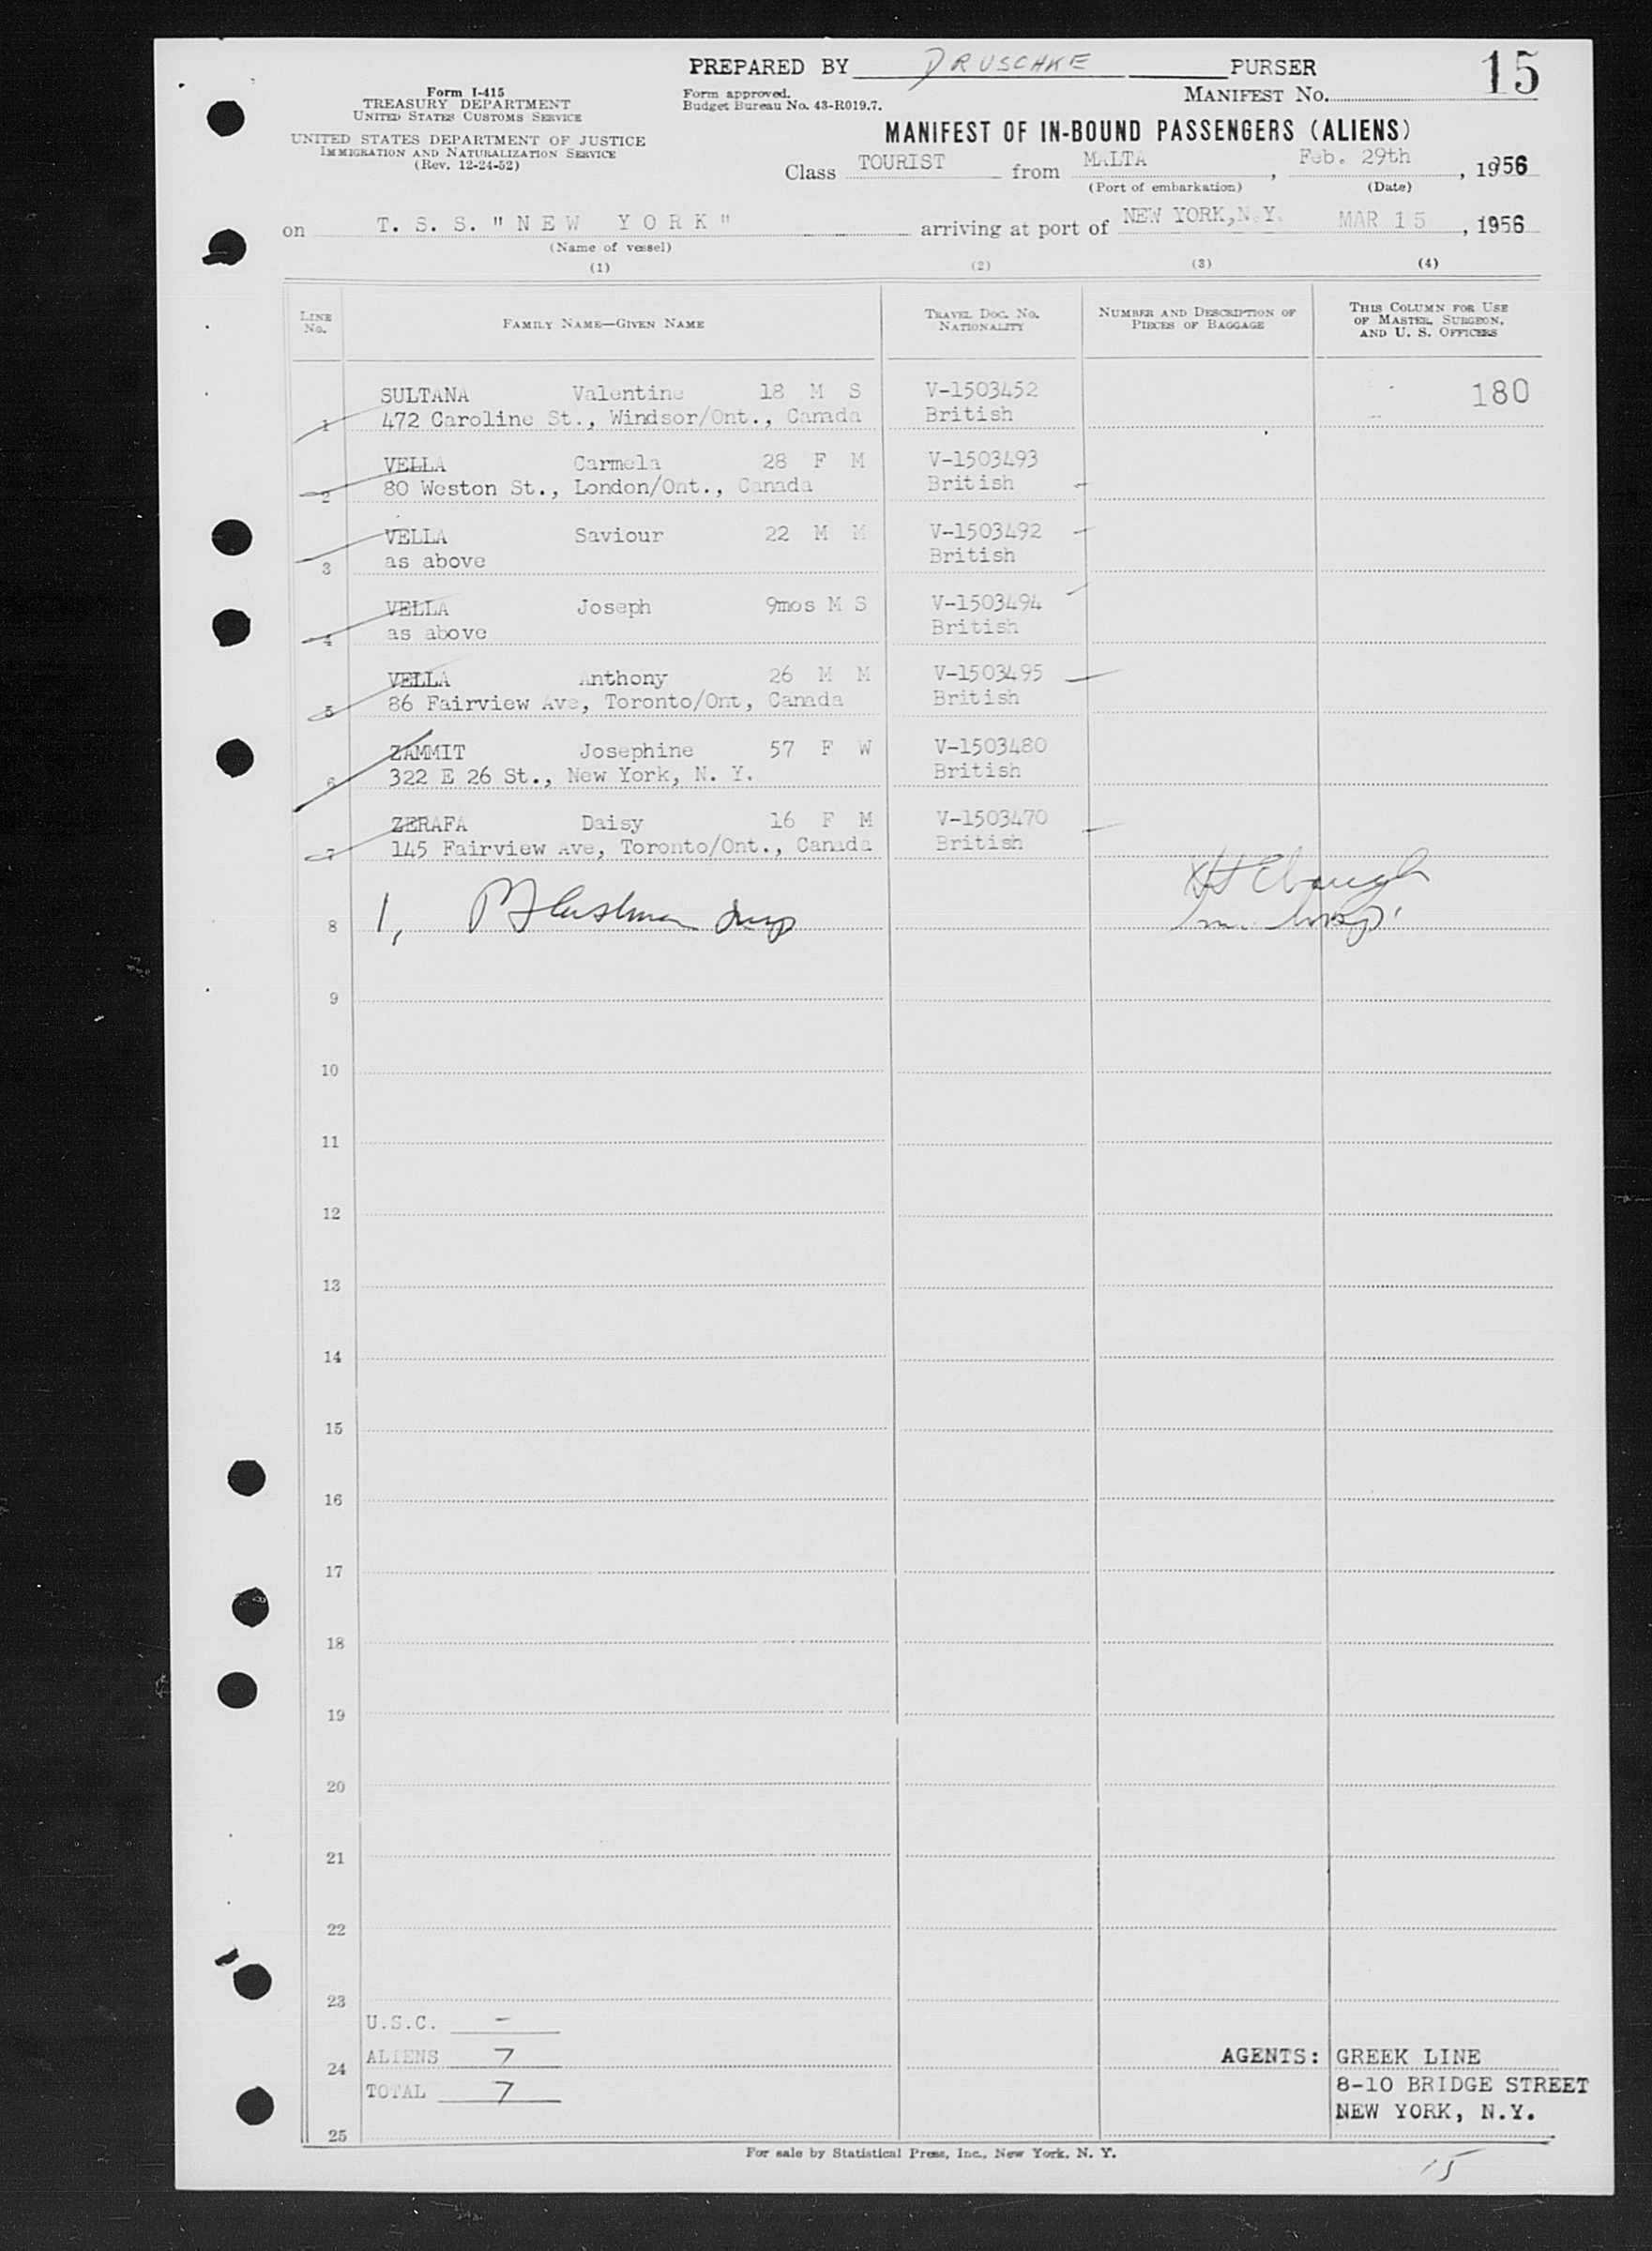 PREPARED BY DRUSCHKE PURSER
15
Form I-415
TREASURY DEPARTMENT
UNITED STATES CUSTOMS SERVICE
UNITED STATES DEPARTMENT OF JUSTICE
IMMIGRATION AND NATURALIZATION SERVICE
(Rev. 12-24-52)
Form approved.
Budget Bureau No. 43-R019.7.
MANIFEST No.
MANIFEST OF IN-BOUND PASSENGERS (ALIENS)
Class TOURIST from MALTA, Feb. 29th, 1956
(Port of embarkation) (Date)
on T. S. S. "NEW YORK" arriving at port of NEW YORK, N.Y. MAR 15, 1956
(Name of vessel)
(1) (2) (3) (4)
LINE No. FAMILY NAME—GIVEN NAME TRAVEL DOC. No. NATIONALITY NUMBER AND DESCRIPTION OF PIECES OF BAGGAGE THIS COLUMN FOR USE OF MASTER, SURGEON, AND U. S. OFFICERS
SULTANA Valentine 18 M S V-1503452 180
1 472 Caroline St., Windsor/Ont., Canada British
VELLA Carmela 28 F M V-1503493
2 80 Weston St., London/Ont., Canada British
VELLA Saviour 22 M M V-1503492
3 as above British
VELLA Joseph 9mos M S V-1503494
4 as above British
VELLA Anthony 26 M M V-1503495
5 86 Fairview Ave, Toronto/Ont, Canada British
ZAMMIT Josephine 57 F W V-1503480
6 322 E 26 St., New York, N. Y. British
ZERAFA Daisy 16 F M V-1503470
7 145 Fairview Ave, Toronto/Ont., Canada British
8 1,
9
10
11
12
13
14
15
16
17
18
19
20
21
22
23
U.S.C. -
24 ALIENS 7 AGENTS: GREEK LINE
TOTAL 7 8-10 BRIDGE STREET
NEW YORK, N.Y.
25
For sale by Statistical Press, Inc., New York, N. Y.
15